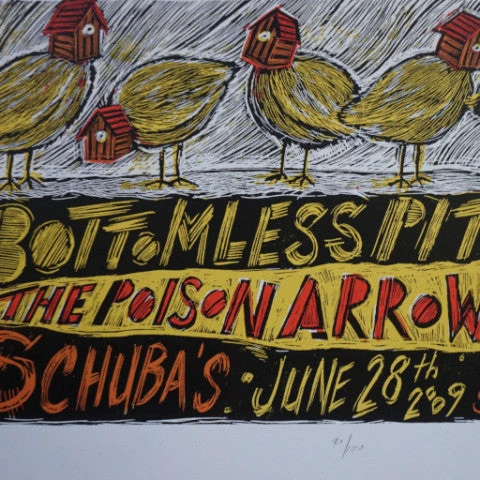 BOTTOMLESS PIT
THE POISON ARROW
SCHUBA'S. · JUNE 28th 2009
21/100